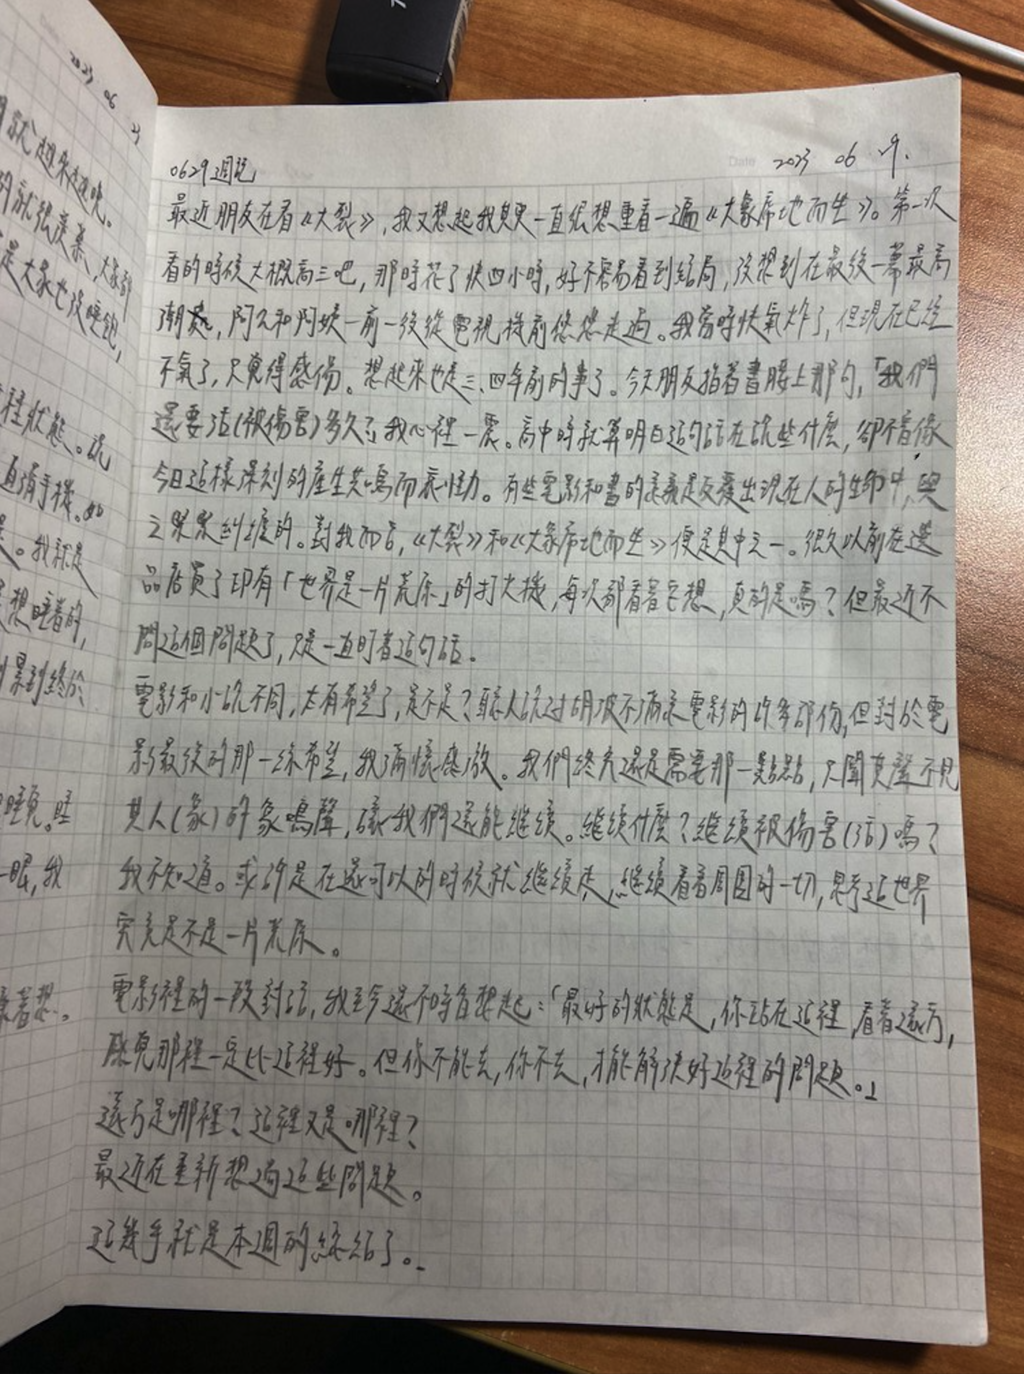 2023 06
就越來越晚。
的就很羨慕,大家都
是大家也沒睡飽,
種狀態。說
直滑手機。如
。我就是
想睡著的,
累到終於
睡覺。睡
一眠,我
著想。
2023 06 29.
0629週記
最近朋友在看《大裂》,我又想起我其實一直很想重看一遍《大象席地而坐》。第一次
看的時候大概高三吧,那時花了快四小時,好不容易看到結局,沒想到在最後一幕最高
潮處,阿公和阿嬤一前一後從電視機前悠悠走過。我當時快氣炸了,但現在已經
不氣了,只覺得感傷。想起來也是三、四年前的事了。今天朋友指著書腰上那句,「我們
還要活(被傷害)多久」,我心裡一震。高中時就算明白這句話在說些什麼,卻不會像
今日這樣深刻的產生共鳴而哀慟。有些電影和書的意義是反覆出現在人的生命中,與
之眾眾糾纏的。對我而言,《大裂》和《大象席地而坐》便是其中之一。很久以前在選
品店買了印有「世界是一片荒原」的打火機,每次都看著它想,真的是嗎?但最近不
問這個問題了,只是一直盯著這句話。
電影和小說不同,太有希望了,是不是?聽人說過胡波不滿意電影的許多部份,但對於電
影最後的那一絲希望,我滿懷感激。我們終究還是需要那一點點,只聞其聲不見
其人(象)的象鳴聲,讓我們還能繼續。繼續什麼?繼續被傷害(活)嗎?
我不知道。或許是在還可以的時候就繼續走,繼續看看周圍的一切,思考這世界
究竟是不是一片荒原。
電影裡的一段對話,我至今還不時會想起:「最好的狀態是,你站在這裡,看著遠方,
感覺那裡一定比這裡好。但你不能去,你不去,才能解決好這裡的問題。」
遠方是哪裡?這裡又是哪裡?
最近在重新想過這些問題。
這幾乎就是本週的總結了。